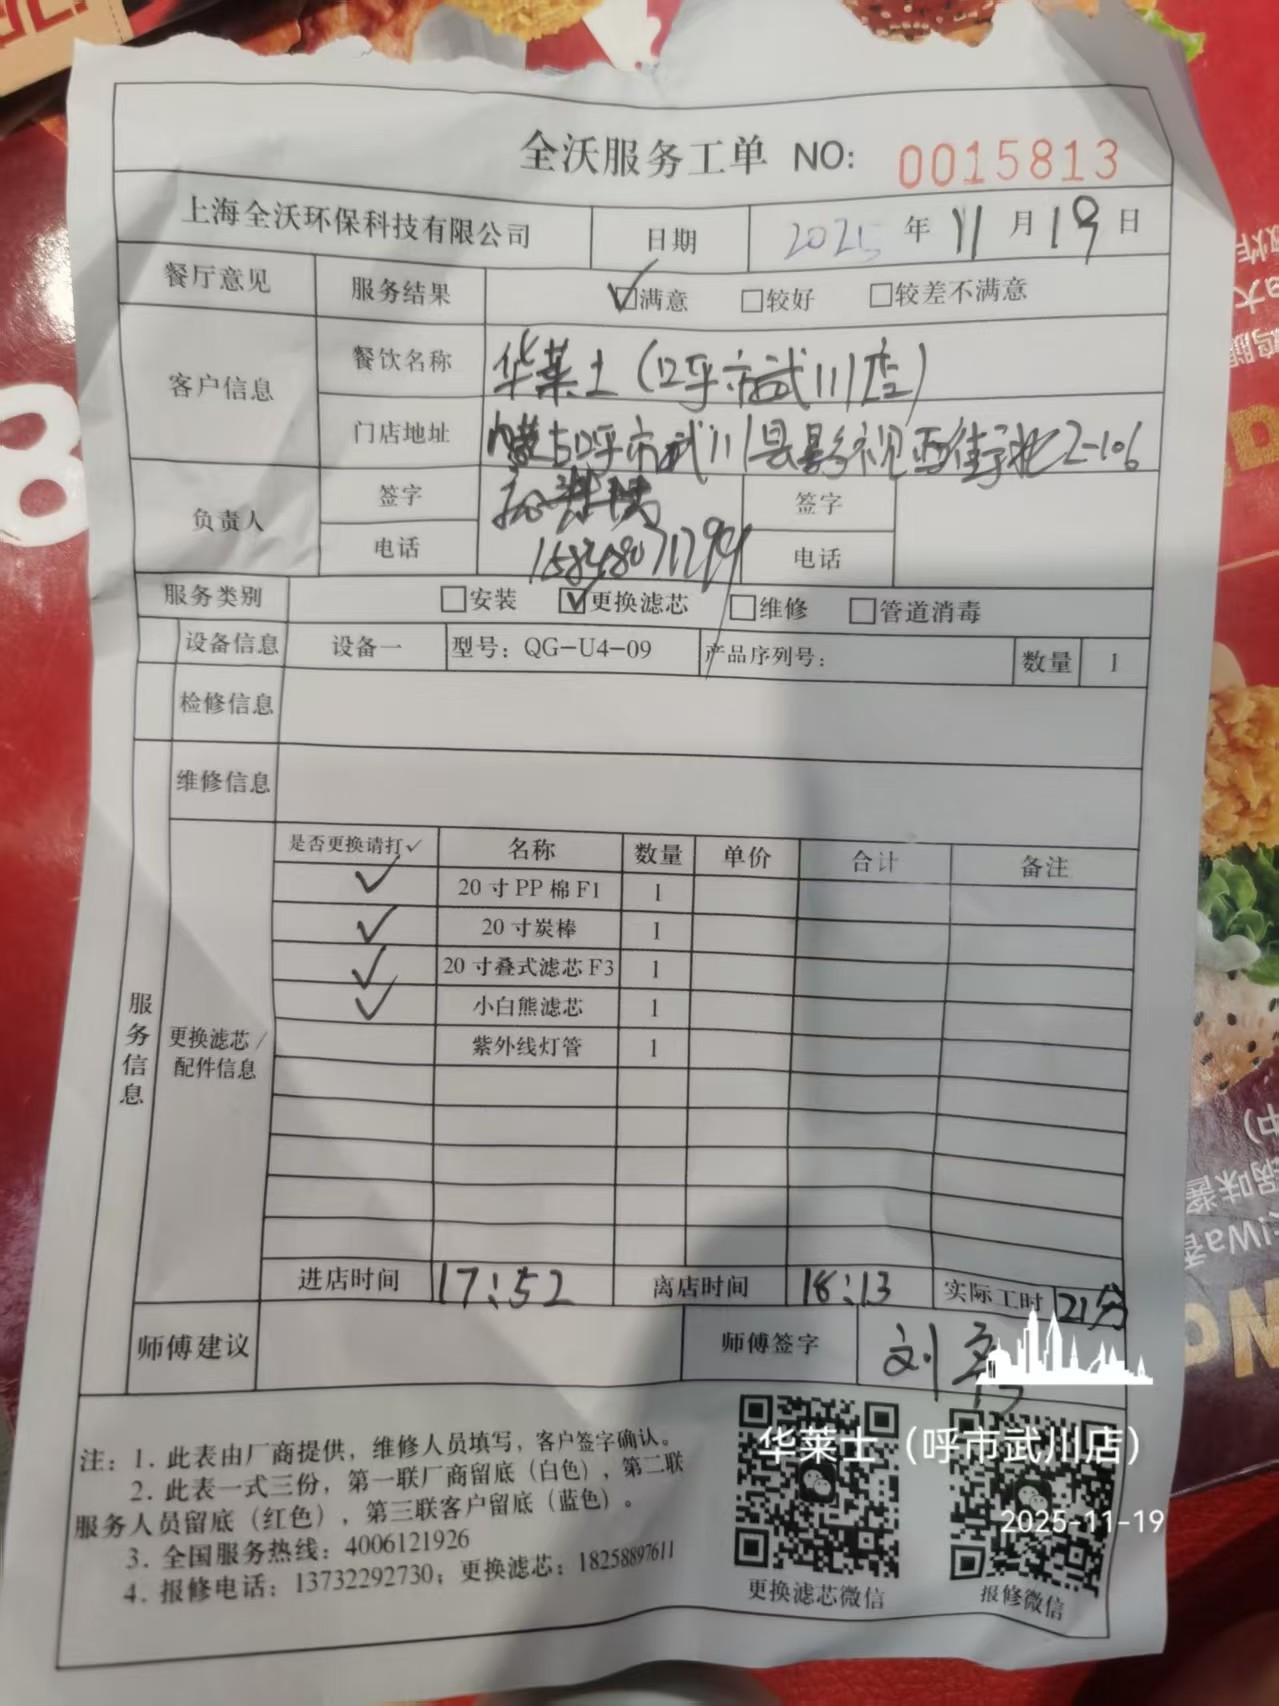 全沃服务工单 NO: 0015813
上海全沃环保科技有限公司 日期 2025年11月19日
餐厅意见 服务结果 ☑满意 □较好 □较差不满意
客户信息 餐饮名称 华莱士(呼市武川店)
门店地址 内蒙古呼市武川县影视西街北2-106
负责人 签字 签字
电话 电话
服务类别 □安装 ☑更换滤芯 □维修 □管道消毒
设备信息 设备一 型号：QG-U4-09 产品序列号： 数量 1
检修信息
维修信息
服务信息
更换滤芯/配件信息
是否更换请打✓ 名称 数量 单价 合计 备注
✓ 20寸PP棉F1 1
✓ 20寸炭棒 1
✓ 20寸叠式滤芯F3 1
✓ 小白熊滤芯 1
紫外线灯管 1
进店时间 17:52 离店时间 18:13 实际工时 21分
师傅建议 师傅签字 刘
注：1. 此表由厂商提供，维修人员填写，客户签字确认。
2. 此表一式三份，第一联厂商留底（白色），第二联
服务人员留底（红色），第三联客户留底（蓝色）。
3. 全国服务热线：4006121926
4. 报修电话：13732292730；更换滤芯：18258897611
更换滤芯微信 报修微信
华莱士（呼市武川店）
2025-11-19